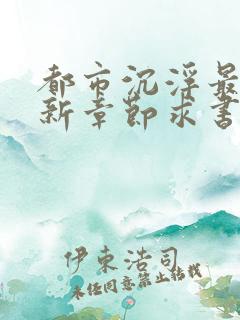 都市沉浮最
新章节求书
伊東浩司
未经同意禁止转载